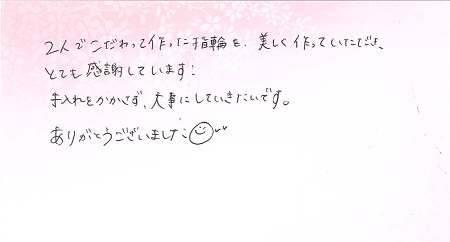 2人でこだわって作った指輪を、美しく作っていただき、
とても感謝しています!
手入れをかかさず、大事にしていきたいです。
ありがとうございました